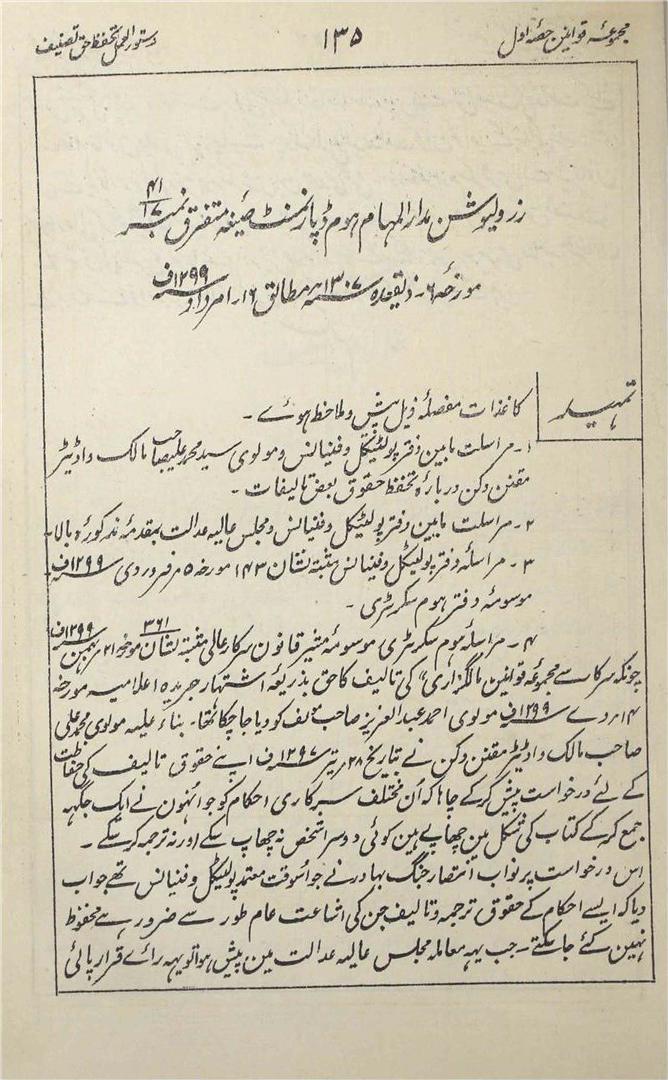 مجموعۂ قوانین حصۂ اول
۱۳۵
دستور العمل تحفظ حق تصنیف
رزولیوشن مدار المہام ہوم ڈپارٹمنٹ صیغہ متفرق نمبر ۴۱/۱۷
مورخہ ۶۔ ذیقعدہ ۱۳۰۷ ھ مطابق ۱۶۔ امرداد ۱۲۹۹ ف
تمہید
کاغذات مفصلۂ ذیل پیش و ملاحظہ ہوئے۔
۱۔ مراسلت مابین دفتر پولٹیکل و فنیانس و مولوی سید محمد علیصاحب مالک و اڈیٹر
مقنن دکن دربارۂ تحفظ حقوق بعض تالیفات۔
۲۔ مراسلت مابین دفتر پولیٹکل و فنیانس و مجلس عالیہ عدالت بمقدمۂ مذکورۂ بالا۔
۳۔ مراسلۂ دفتر پولیٹکل و فنیانس مثبتہ نشان ۱۴۳ مورخہ ۵ فروردی ۱۲۹۹ ف
موسومۂ دفتر ہوم سکرٹری۔
۴۔ مراسلۂ ہوم سکرٹری موسومۂ مشیر قانون سرکار عالی مثبتہ نشان ۳۶۱ مورخہ ۲۱ بہمن ۱۲۹۹ ف
چونکہ سرکار سے مجموعہ قوانین مالگزاری" کی تالیف کا حق بذریعۂ اشتہار جریدہ اعلامیہ مورخہ
۱۴ دے ۱۲۹۹ ف مولوی احمد عبد العزیز صاحب مؤلف کو دیا جا چکا تھا۔ بناءً علیہ مولوی محمد علی
صاحب مالک و اڈیٹر مقنن دکن نے بتاریخ ۲۸ تیر ۱۲۹۷ ف اپنے حقوق تالیف کی حفاظت
کے لئے درخواست پیش کرکے چاہا کہ اُن مختلف سرکاری احکام کو جو انہون نے ایک جگہہ
جمع کرکے کتاب کی شکل مین چھاپے ہین کوئی دوسرا شخص نہ چھاپ سکے اور نہ ترجمہ کر سکے۔
اس درخواست پر نواب انتصار جنگ بہادر نے جو اسوقت معتمد پولیٹکل و فنیانس تھے جواب
دیا کہ ایسے احکام کے حقوق ترجمہ و تالیف جن کی اشاعت عام طور سے ضرور ہے محفوظ
نہین کئے جا سکتے۔ جب یہہ معاملہ مجلس عالیہ عدالت مین پیش ہوا تو یہہ رائے قرار پائی